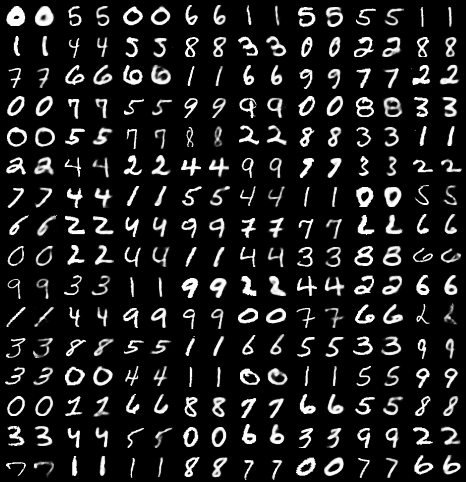 0 0 5 5 0 0 6 6 1 1 5 5 5 5 1 1
1 1 4 4 5 5 8 8 3 3 0 0 2 2 8 8
7 7 6 6 6 6 1 1 6 6 9 9 7 7 2 2
0 0 7 7 5 5 9 9 9 9 0 0 8 8 3 3
0 0 5 5 7 7 8 8 2 2 8 8 3 3 1 1
2 2 4 4 2 2 4 4 9 9 9 9 3 3 2 2
7 7 4 4 1 1 5 5 4 4 1 1 0 0 5 5
6 6 2 2 4 4 9 9 7 7 7 7 2 2 6 6
0 0 2 2 4 4 1 1 4 4 3 3 8 8 6 6
9 9 3 3 1 1 9 9 2 2 4 4 2 2 6 6
1 1 4 4 9 9 9 9 0 0 7 7 6 6 2 2
3 3 8 8 5 5 1 1 6 6 5 5 3 3 9 9
3 3 0 0 4 4 1 1 0 0 1 1 5 5 9 9
0 0 1 1 6 6 8 8 7 7 6 6 5 5 8 8
3 3 4 4 5 5 0 0 6 6 3 3 9 9 2 2
7 7 1 1 1 1 8 8 7 7 0 0 7 7 6 6